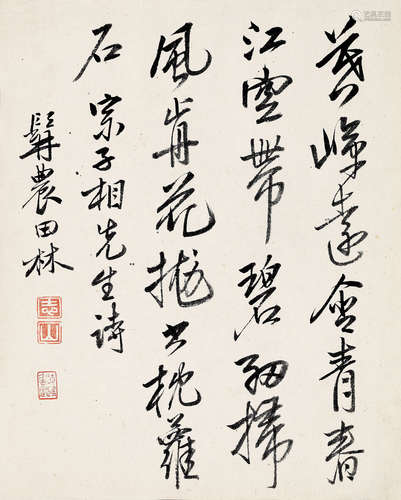 暮嶂遠含青春
江雲帶碧細掃
風前花拋書枕蘿
石 宗子相先生詩
髯農田林